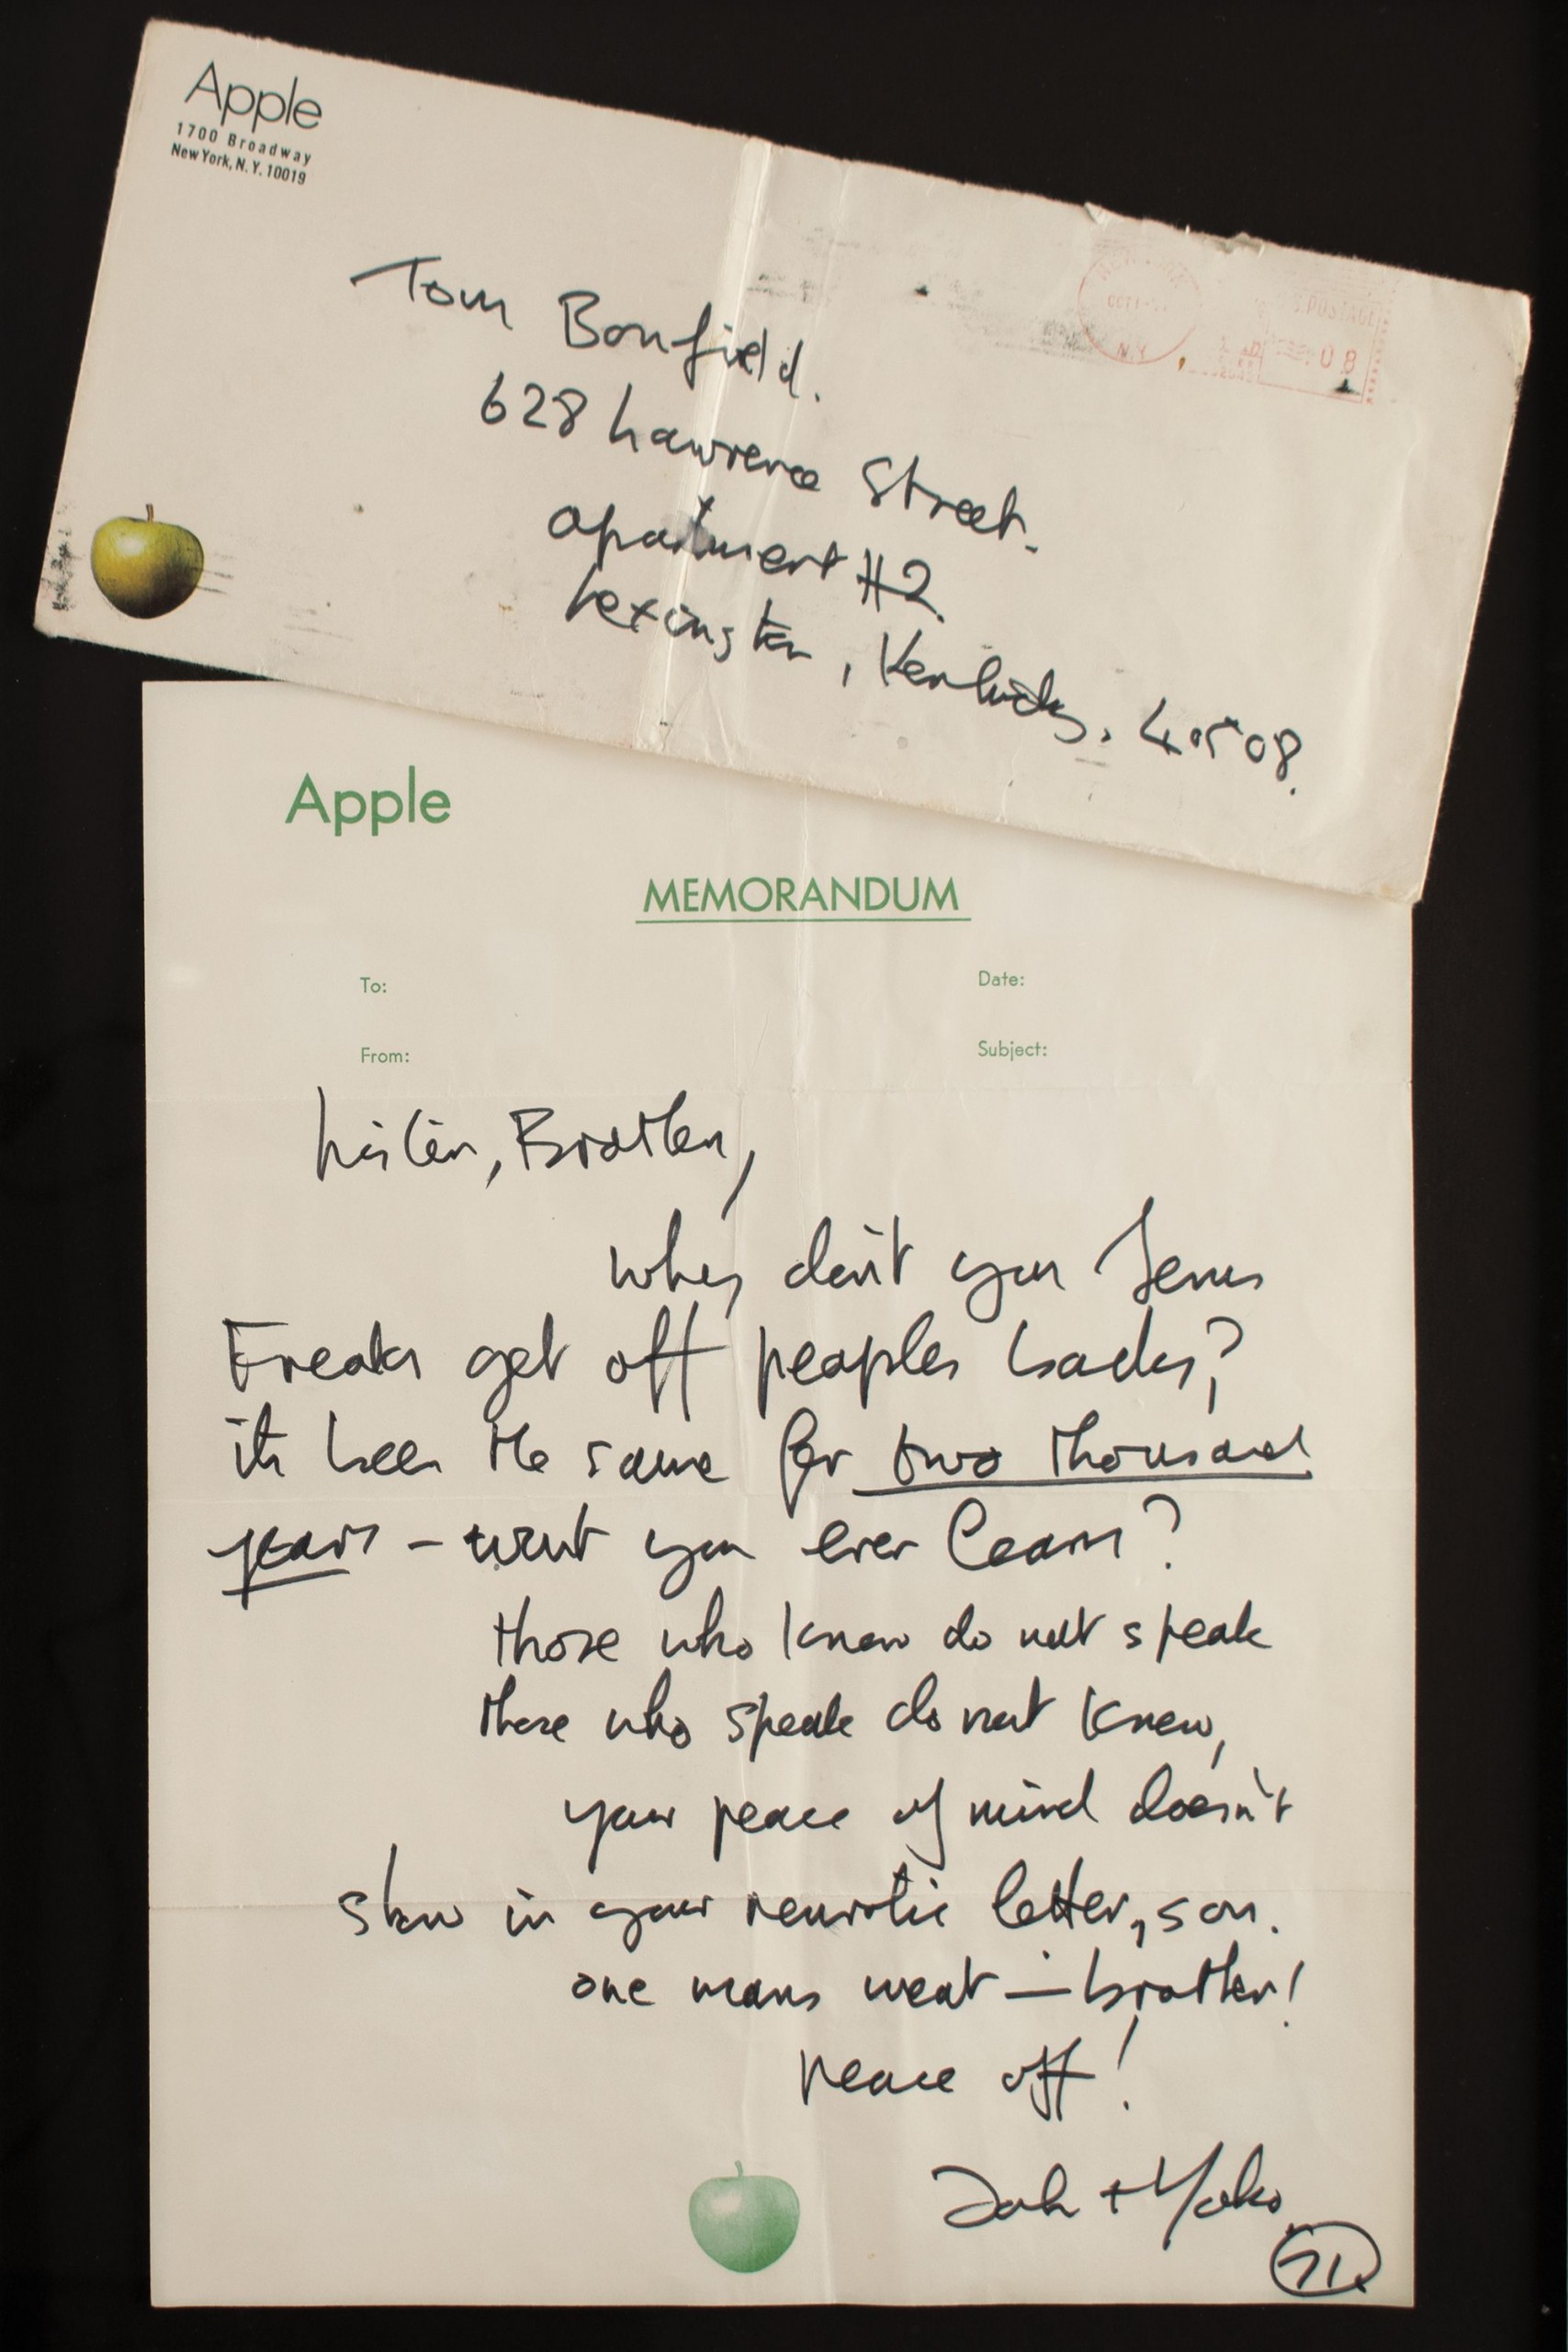 Apple
1700 Broadway
New York, N.Y. 10019
Tom Bonfield.
628 Lawrence Street.
apartment #2
Lexington, Kentucky. 40508.
NEW YORK
OCT 1
N.Y.
U.S. POSTAGE
08
Apple
MEMORANDUM
To:
Date:
From:
Subject:
Listen, Brother,
why don't you Jesus
Freaks get off peoples backs?
its been the same for two thousand
years - wont you ever learn?
those who know do not speak
those who speak do not know,
your peace of mind doesn't
show in your neurotic letter, son.
one mans meat — brother!
peace off!
John + Yoko
71.